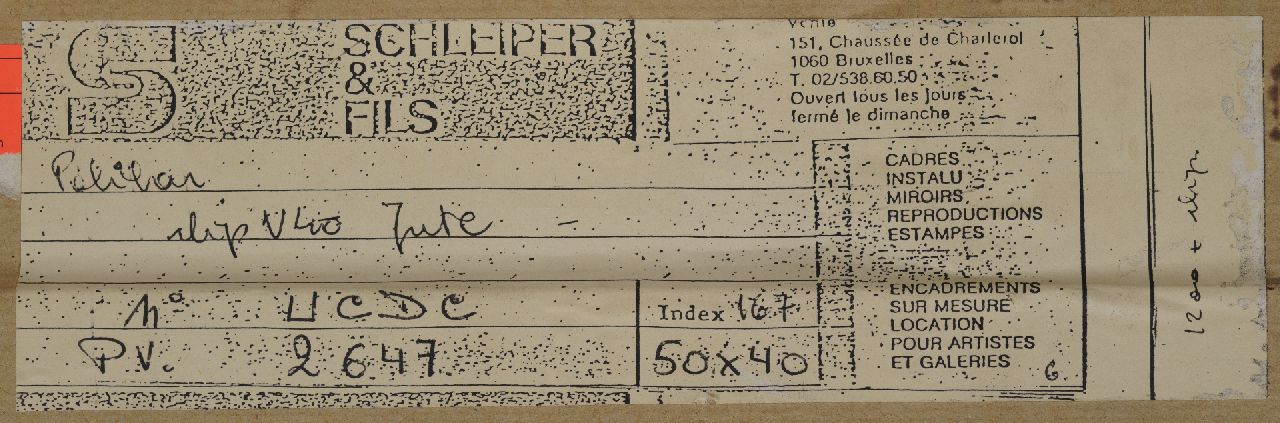 S SCHLEIPER
&
FILS
151, Chaussée de Charleroi
1060 Bruxelles
T. 02/538.60.50
Ouvert tous les jours
fermé le dimanche
CADRES
INSTALU
MIROIRS
REPRODUCTIONS
ESTAMPES
ENCADREMENTS
SUR MESURE
LOCATION
POUR ARTISTES
ET GALERIES
6
V40 Jute -
N° UCDC
Index 167
PV. 2647
50x40
1200 +